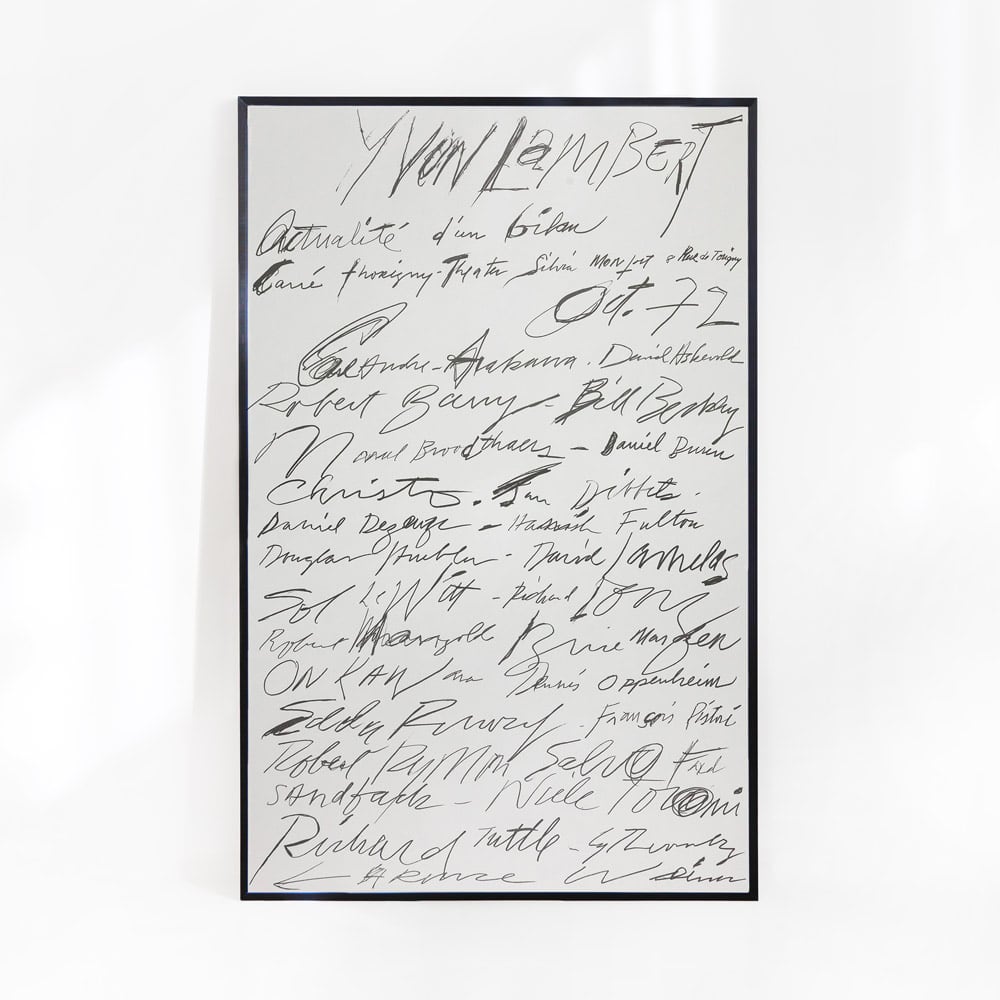 YVON LAMBERT
Actualité d'un bilan
Carré Thorigny-Theater Silvia Monfort Rue de Torigny
Oct. 72
Carl Andre - Arakawa. David Askevold
Robert Barry - Bill Beckley
Marcel Broodthaers - Daniel Buren
Christo. Jan Dibbets.
Daniel Dezeuze - Hamish Fulton
Douglas Huebler - David Lamelas
Sol LeWitt - Richard Long
Robert Mangold Brice Marden
ON KAWara Dennis Oppenheim
Edda Renouf - François Ristori
Robert Ryman Salvo Fred
SANdback - Niele Toroni
Richard Tuttle - Cy Twombly
Lawrence Weiner